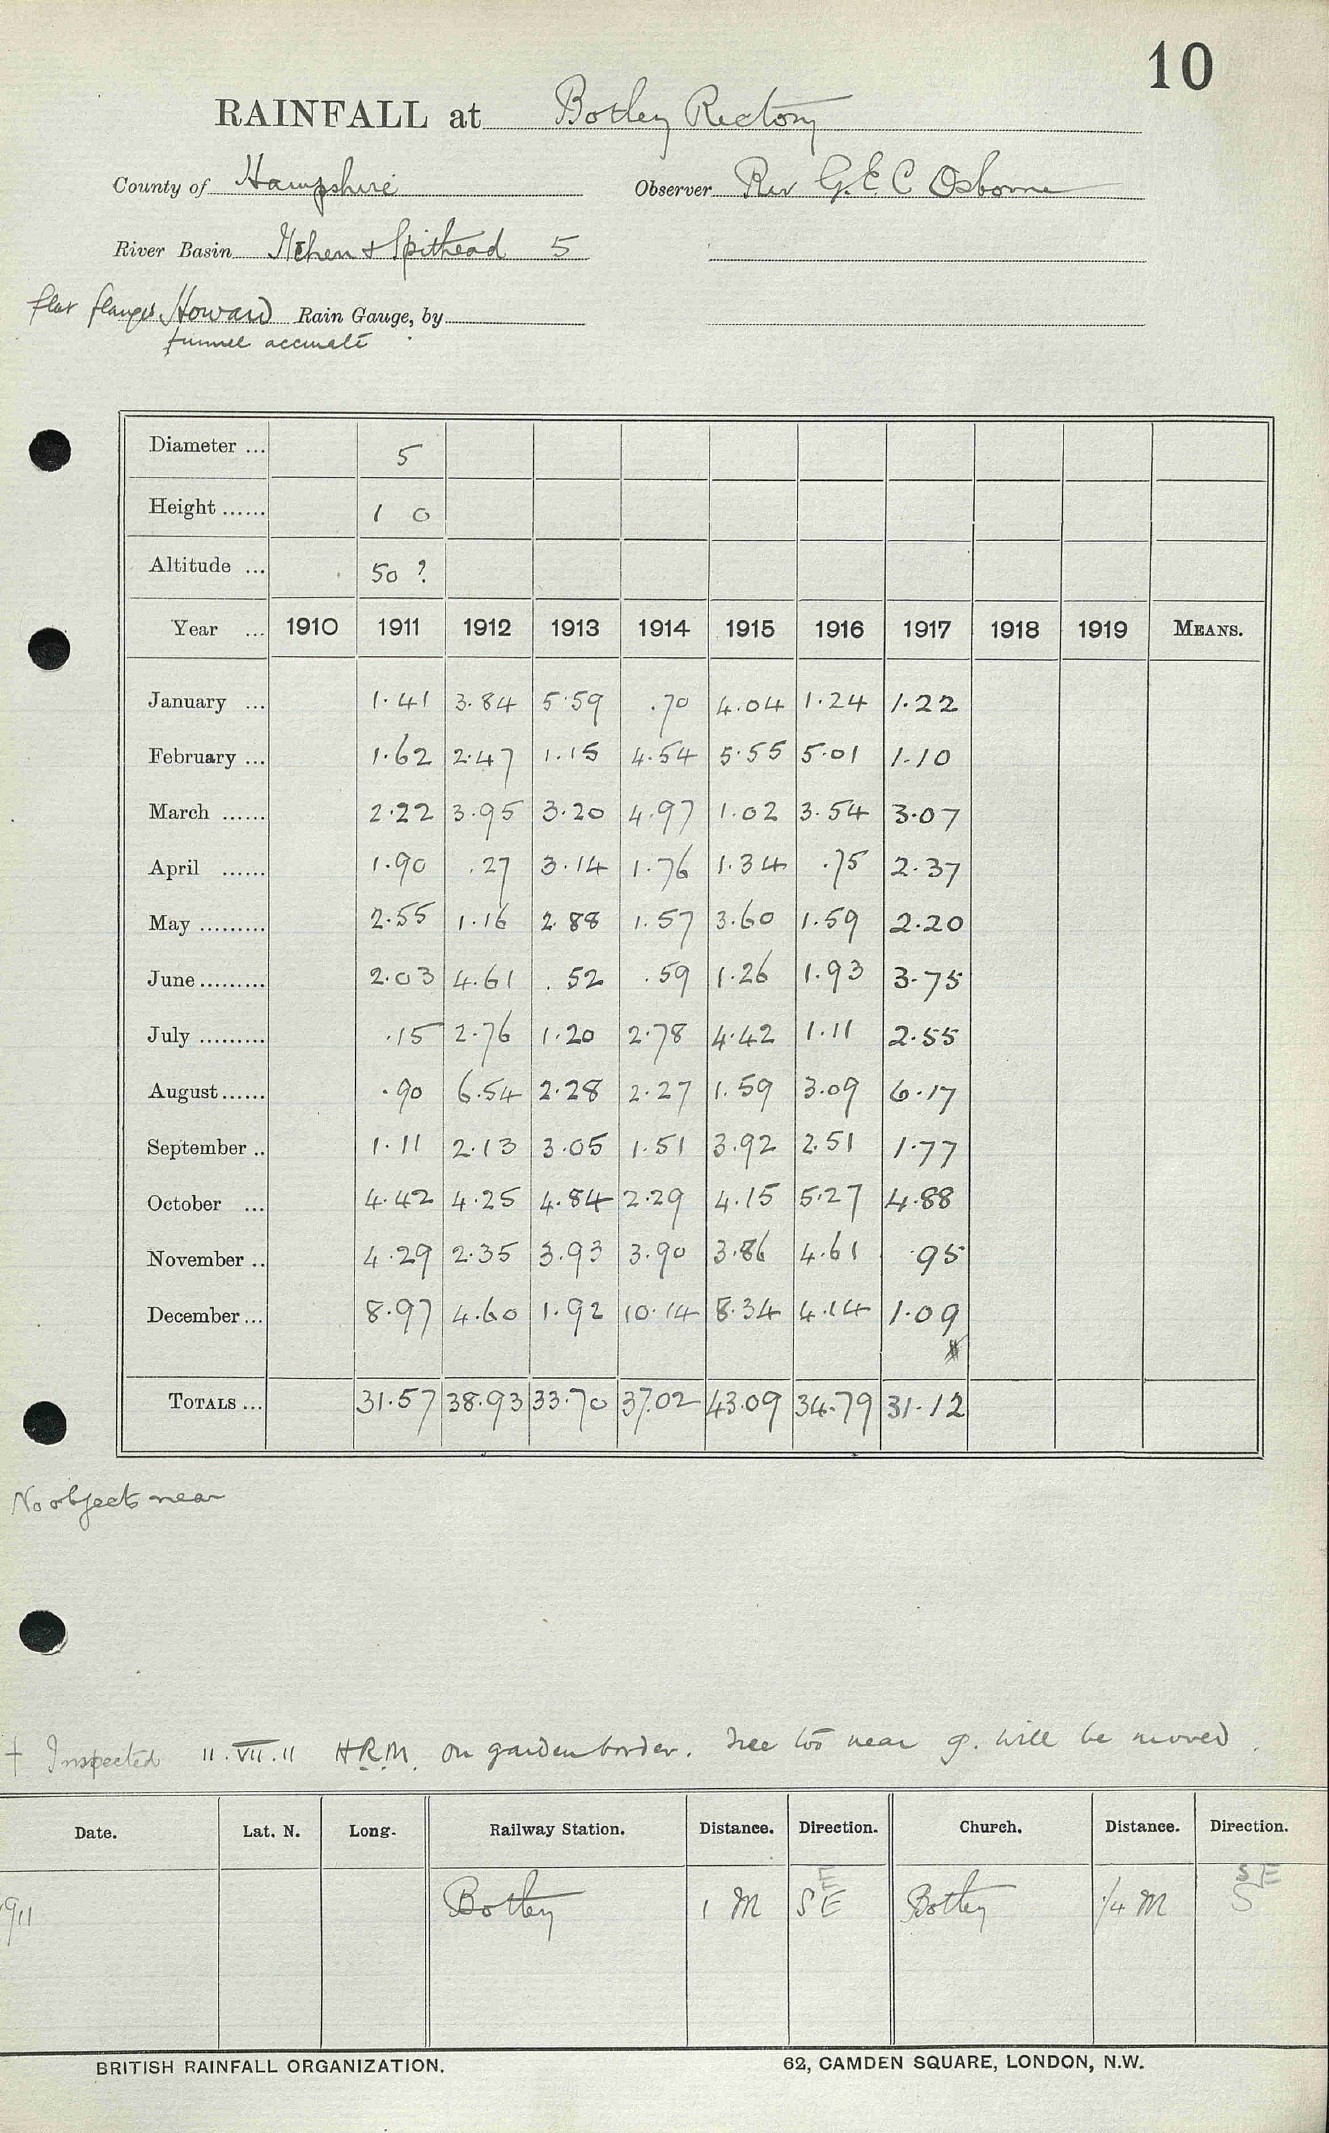 10
RAINFALL at Botley Rectory
County of Hampshire Observer Rev G. E. C Osborne
River Basin Itchen & Spithead 5
flat flanges Howard Rain Gauge, by
funnel accurate
Diameter ... 5
Height ...... 1 0
Altitude ... 50 ?
Year ... 1910 1911 1912 1913 1914 1915 1916 1917 1918 1919 MEANS.
January ... 1.41 3.84 5.59 .70 4.04 1.24 1.22
February ... 1.62 2.47 1.15 4.54 5.55 5.01 1.10
March ...... 2.22 3.95 3.20 4.97 1.02 3.54 3.07
April ...... 1.90 .27 3.14 1.76 1.34 .75 2.37
May ......... 2.55 1.16 2.88 1.57 3.60 1.59 2.20
June ......... 2.03 4.61 .52 .59 1.26 1.93 3.75
July ......... .15 2.76 1.20 2.78 4.42 1.11 2.55
August ...... .90 6.54 2.28 2.27 1.59 3.09 6.17
September .. 1.11 2.13 3.05 1.51 3.92 2.51 1.77
October ... 4.42 4.25 4.84 2.29 4.15 5.27 4.88
November .. 4.29 2.35 3.93 3.90 3.86 4.61 .95
December ... 8.97 4.60 1.92 10.14 8.34 4.14 1.09
TOTALS ... 31.57 38.93 33.70 37.02 43.09 34.79 31.12
No objects near
† Inspected 11.VII.11 H.R.M. on garden border. Tree too near g. will be moved.
Date. Lat. N. Long. Railway Station. Distance. Direction. Church. Distance. Direction.
E SE
911 Botley 1 M SE Botley 1/4 M S
BRITISH RAINFALL ORGANIZATION. 62, CAMDEN SQUARE, LONDON, N.W.